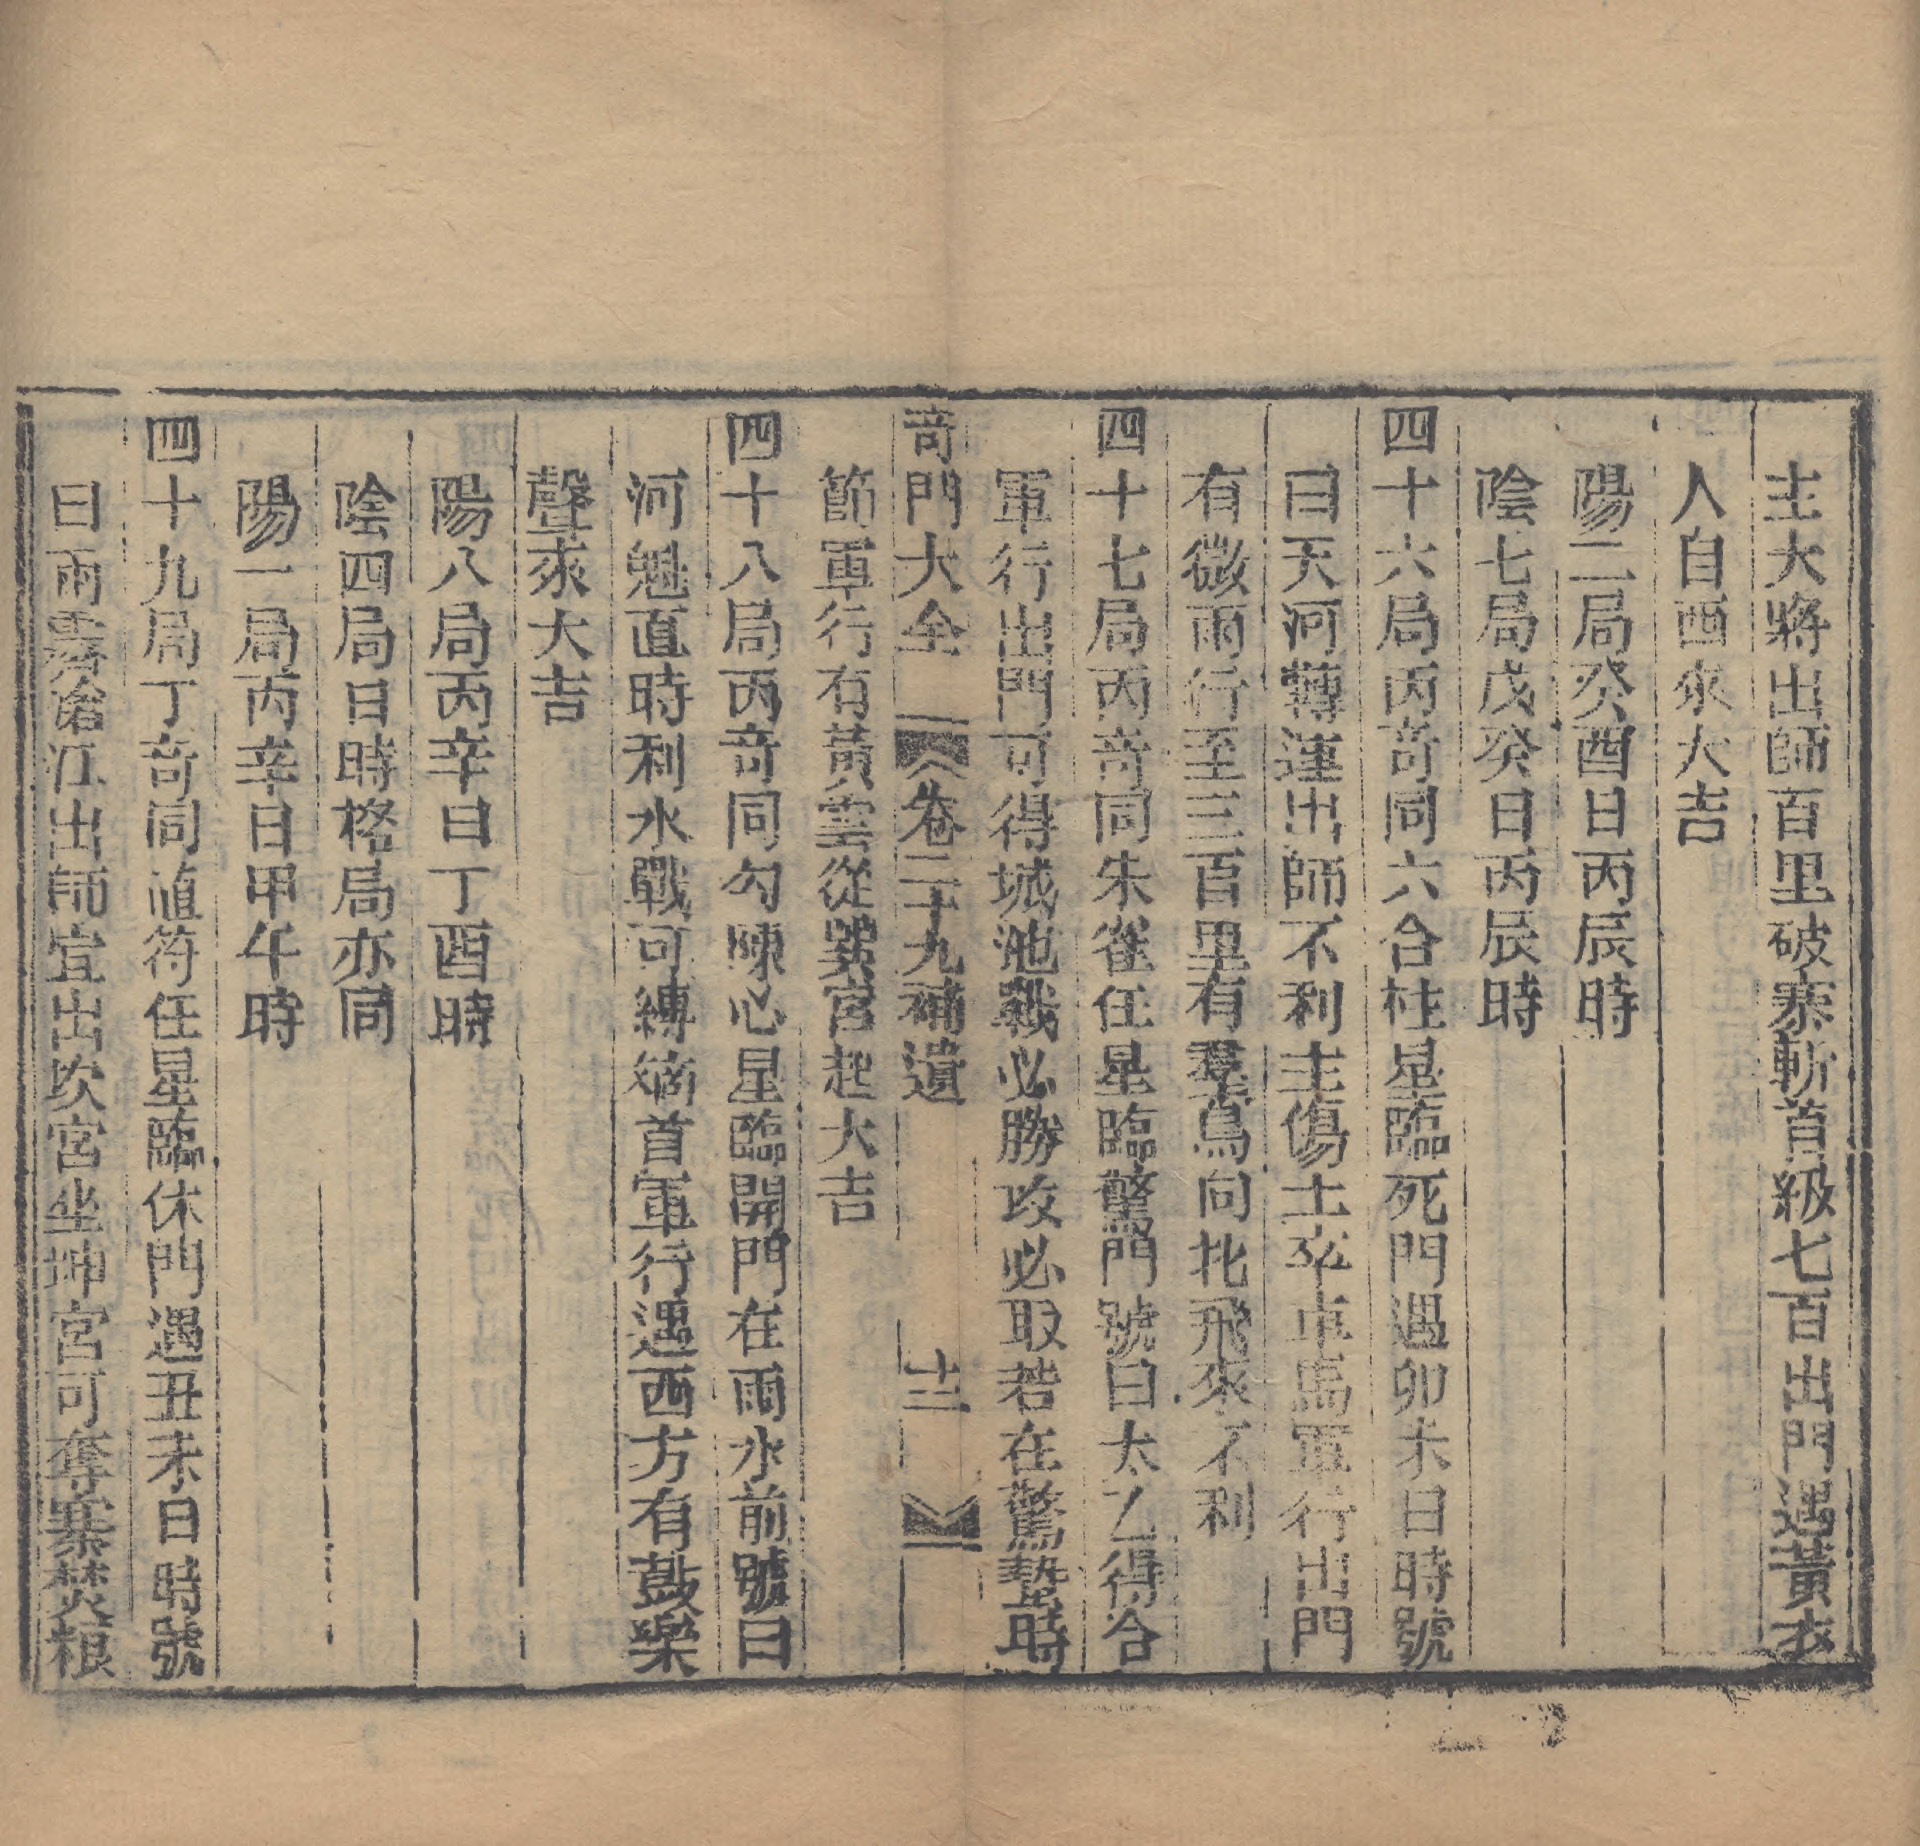 主大將出師百里破寨斬首級七百出門遇黃衣
人自酉來大吉
陽二局癸酉日丙辰時
陰七局戊癸日丙辰時
四十六局丙奇同六合柱星臨死門遇卯未日時號
曰天河轉運出師不利主傷士卒車馬軍行出門
有微雨行至三百里有羣鳥向北飛來不利
四十七局丙奇同朱雀任星臨驚門號曰太乙得合
軍行出門可得城池戰必勝攻必取若在驚蟄時
奇門大全 卷二十九補遺 十三
節軍行有黃雲從巽宮起大吉
四十八局丙奇同勾陳心星臨開門在雨水前號曰
河魁直時利水戰可縛 首軍行遇西方有鼓樂
聲來大吉
陽八局丙辛日丁酉時
陰四局日時格局亦同
陽一局丙辛日甲午時
四十九局丁奇同值符任星臨休門遇丑未日時號
曰雨霽滄江出師宜出坎宮坐坤宮可奪寨焚粮